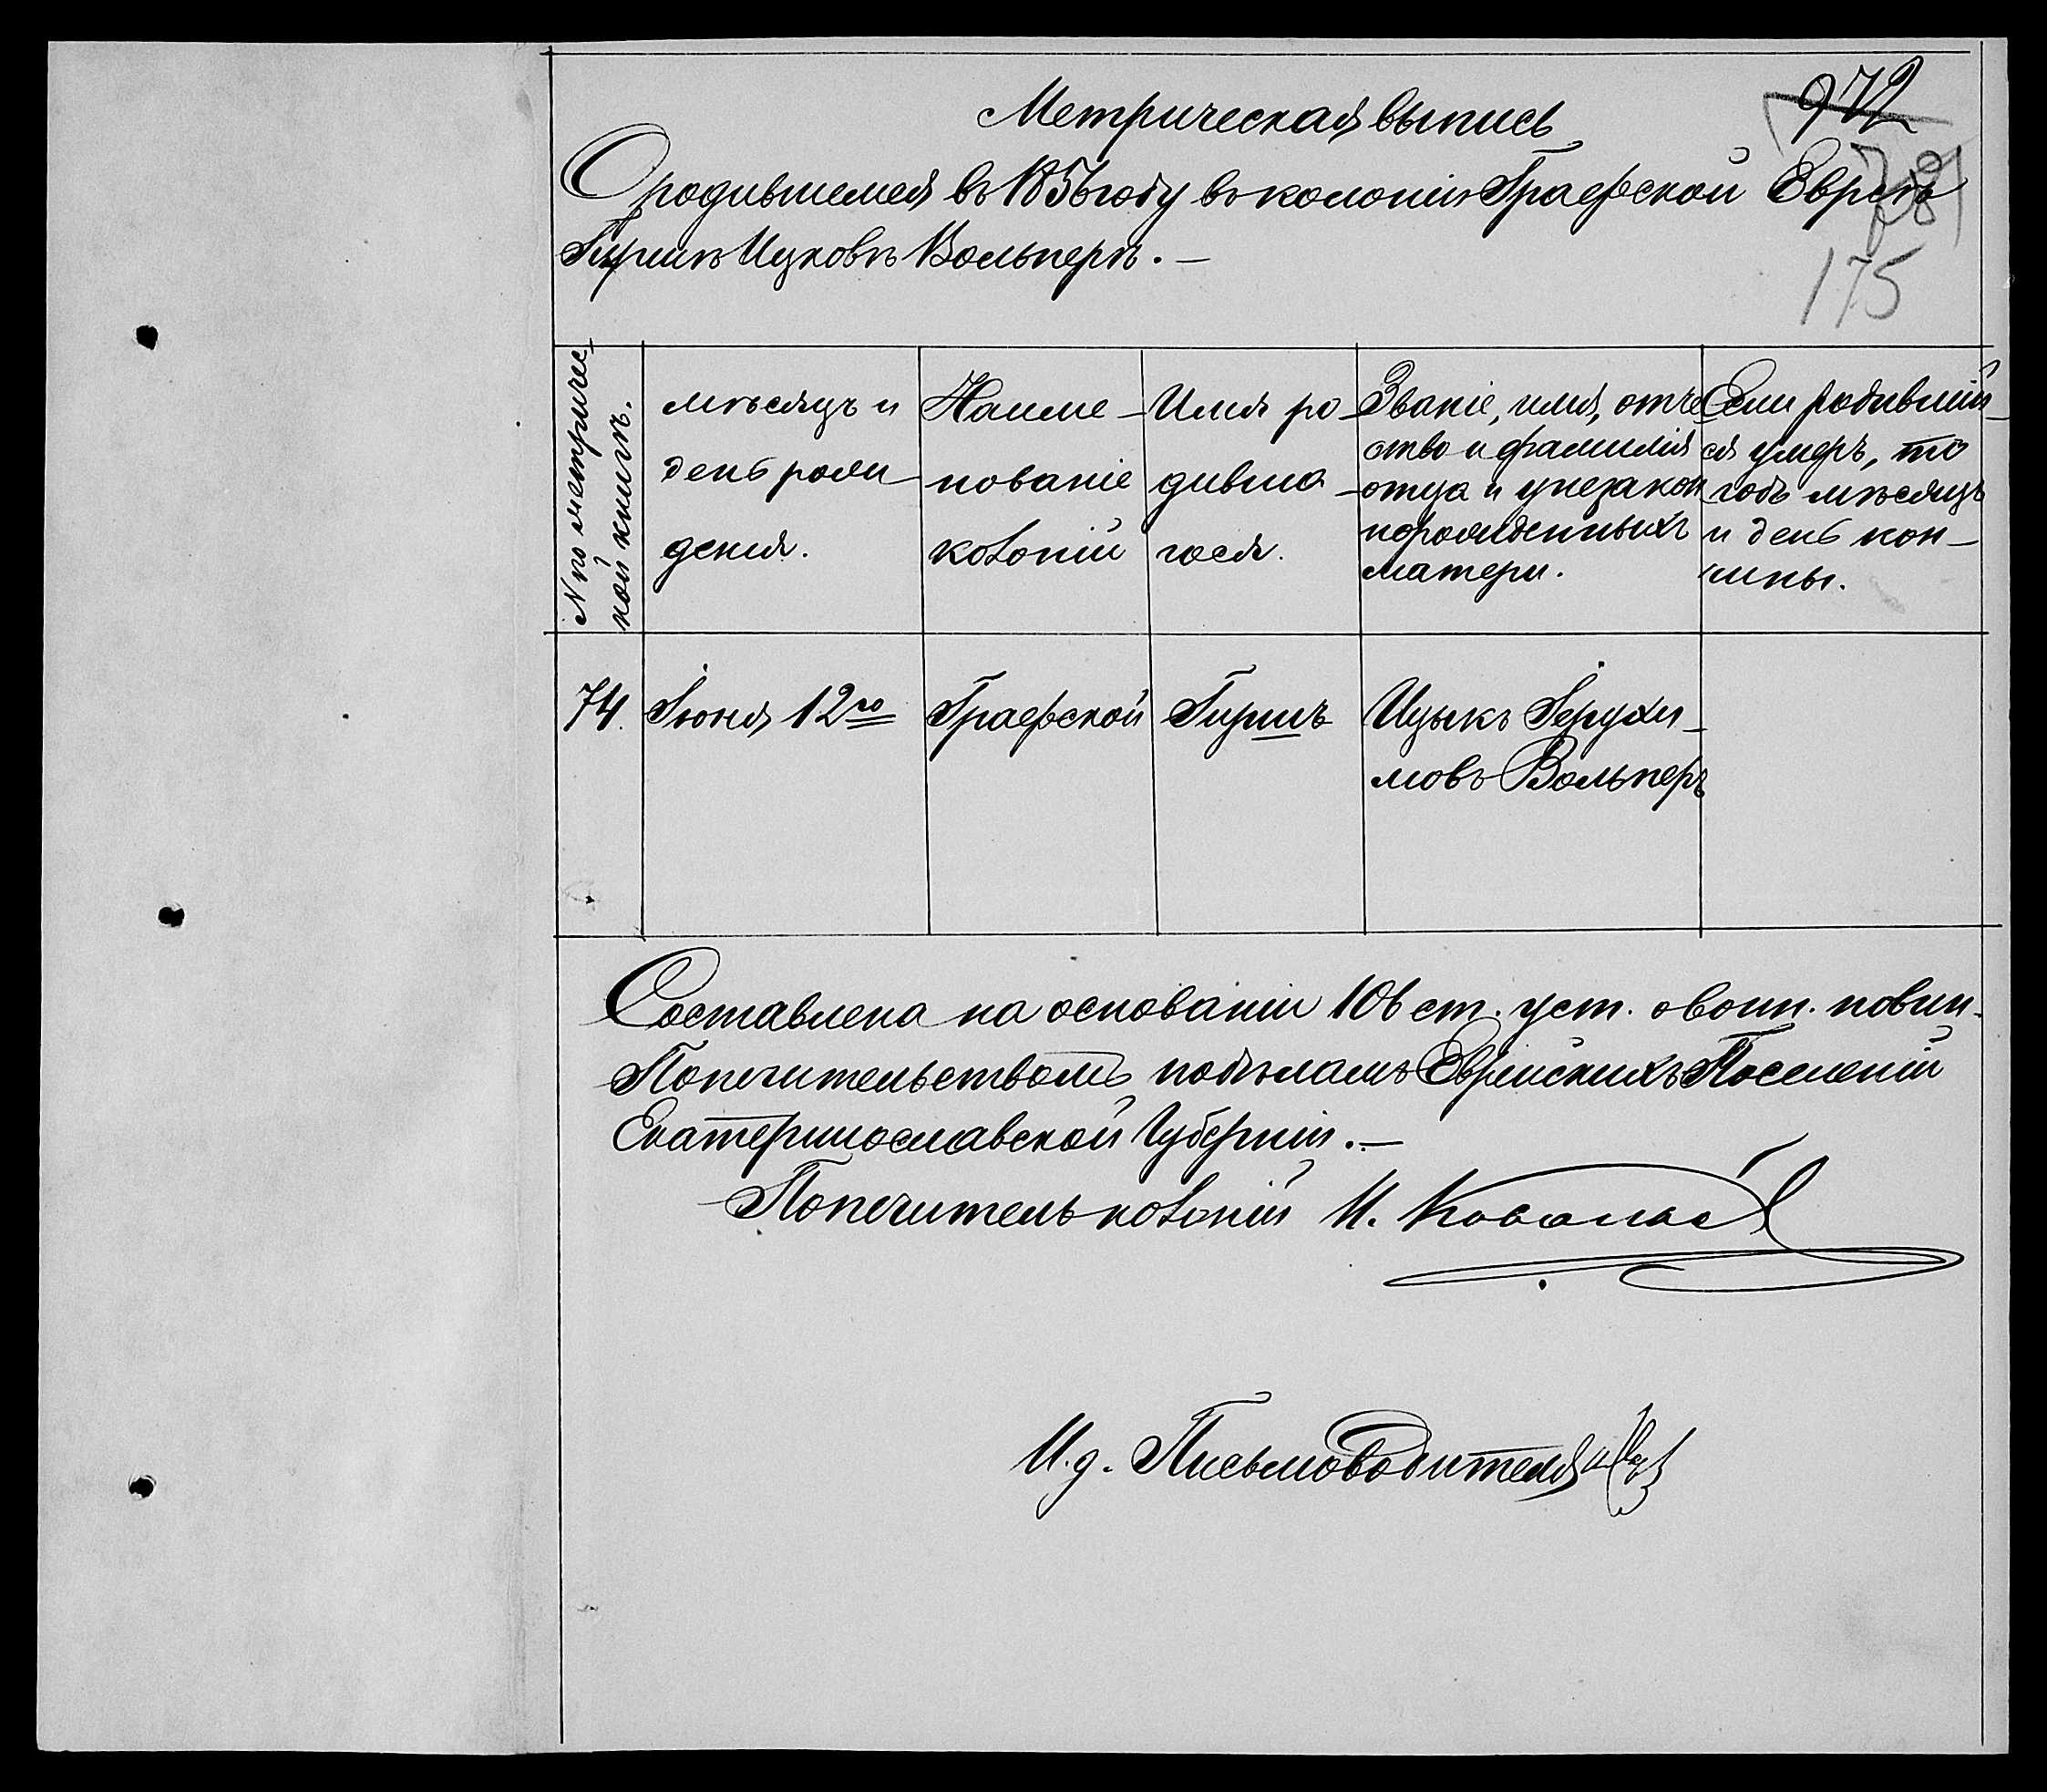 972
Метрическая выпись
О родившемся въ 1856 году въ колоніи Графской Евреѣ
Гиршѣ Ицковѣ Вольперѣ. —
781
175
№ по метричес-
кой книгѣ.
мѣсяцъ и
день рож-
денія.
Наиме-
нованіе
колоніи
Имя ро-
дивша-
гося.
Званіе, имя, отче-
ство и фамилія
отца и у незакон-
норожденныхъ
матери.
Если родившій-
ся умеръ, то
годъ мѣсяцъ
и день кон-
чины.
74.
Іюня 12го
Графской
Гиршъ
Ицыкъ Іерухи-
мовъ Вольперъ
Составлена на основаніи 106 ст. уст. о воин. повин.
Попечительствомъ по дѣламъ Еврейскихъ Поселеній
Екатеринославской Губерніи. —
Попечитель колоній И.
И.д. Письмоводителя